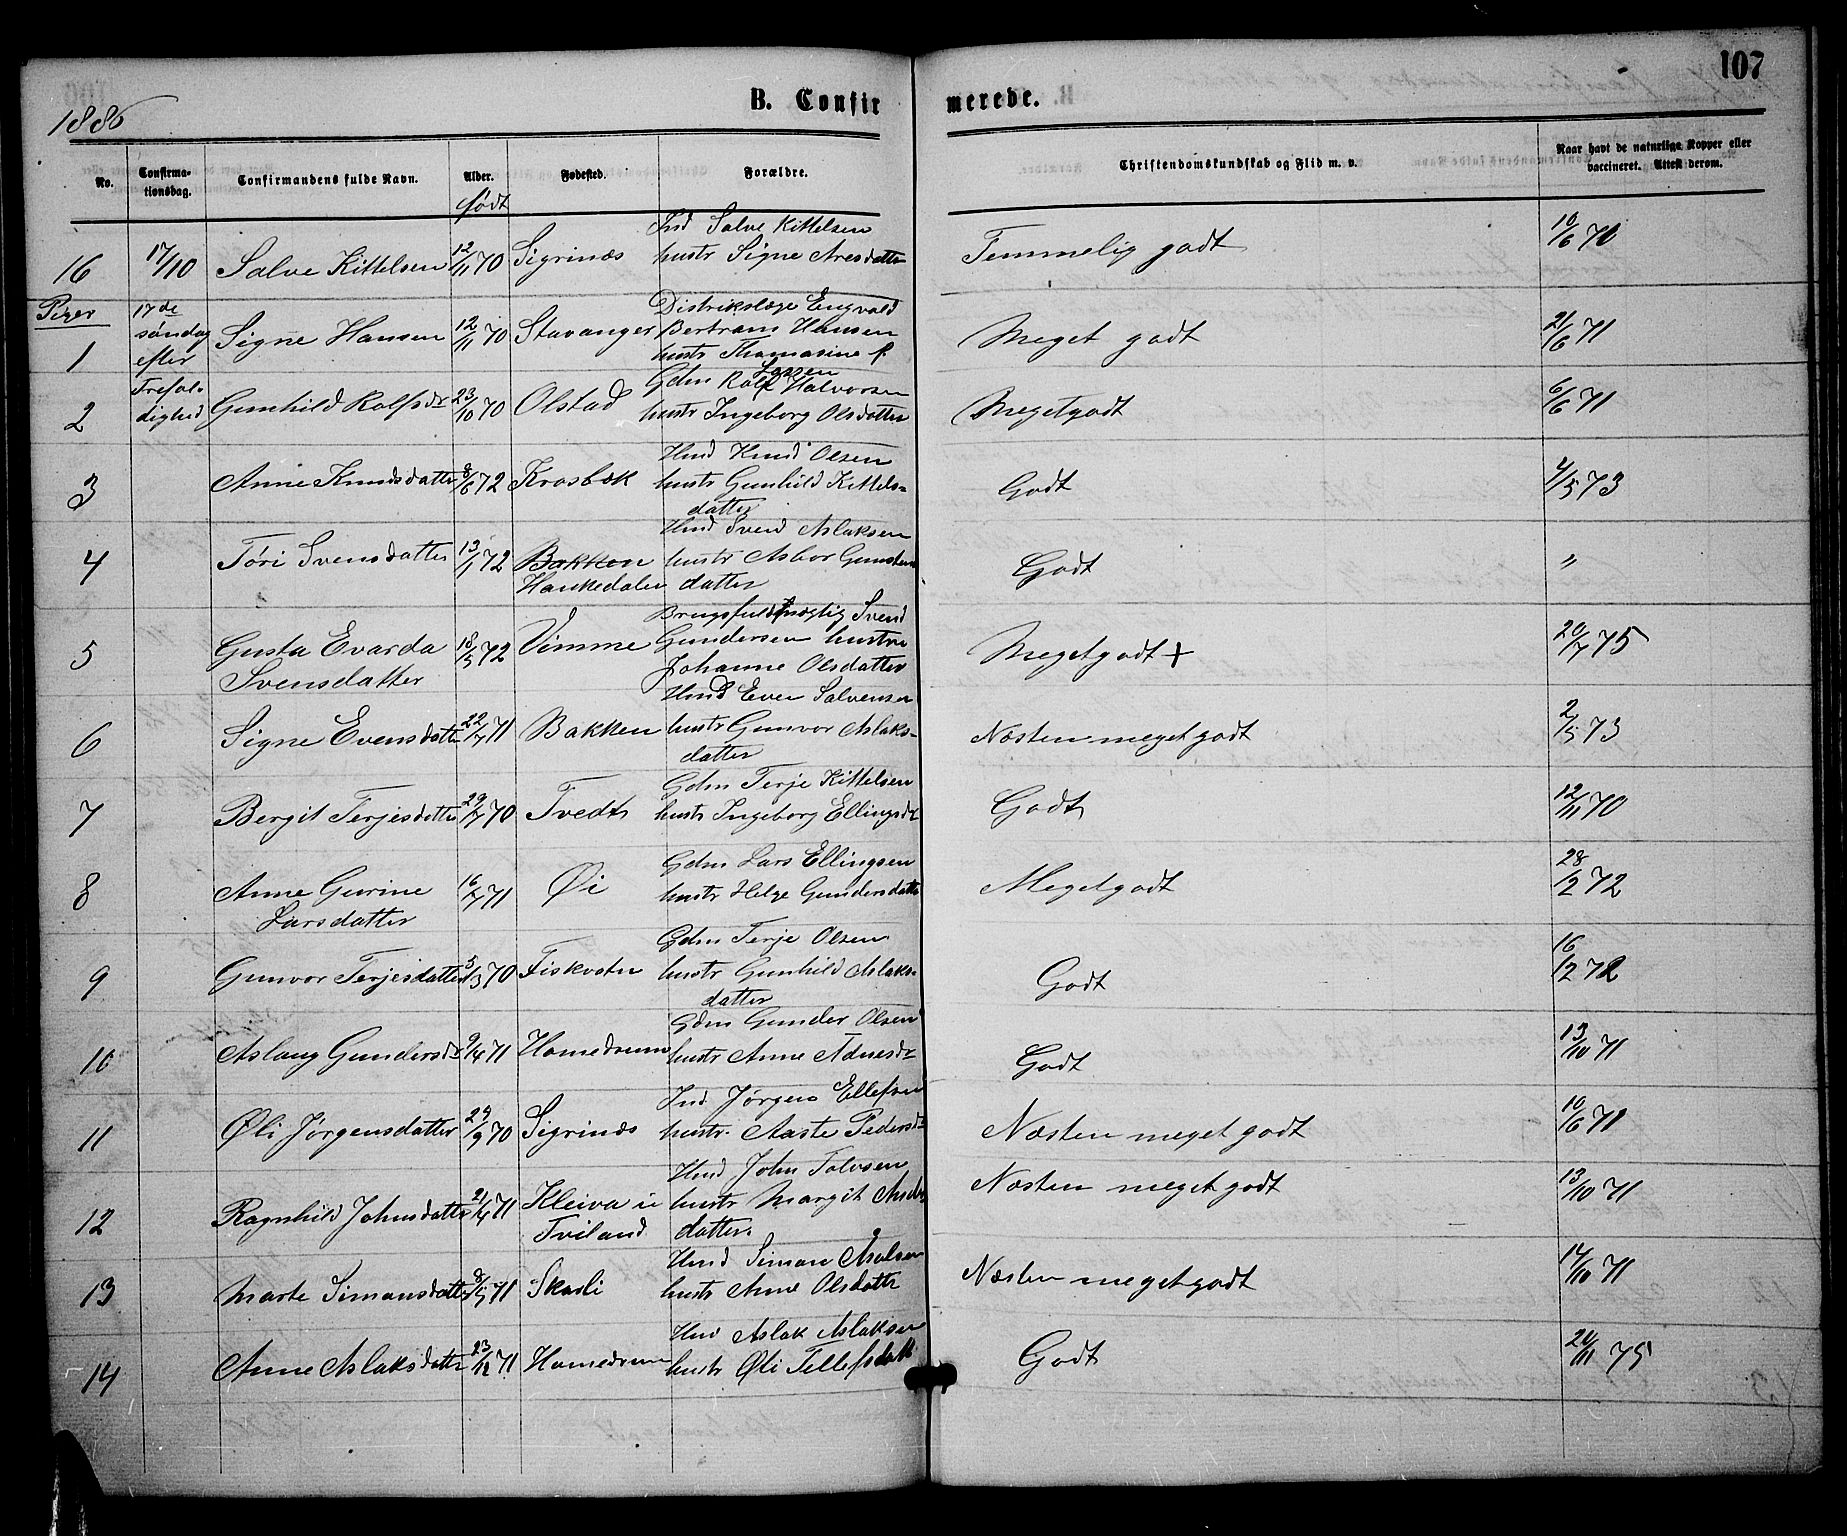 107
B. Confirmerede.
1886
No. Confirmationsdag. Confirmandens fulde Navn. Alder. Fødested. Forældre. Christendomskundskab og Flid m. v. Naar havt de naturlige Kopper eller vaccineret. Attest derom.
født
16 17/10 Salve Kittelsen 12/11 70 Sigrinæs Ind Salve Kittelsen
hustr Signe Aresdatter Temmelig godt 10/6 70
Piger 17de søndag efter Trefoldighed
1 Signe Hansen 12/11 70 Stavanger Distrikslæge Engvald
Bertrans Hansen
hustr Thomasine f.
Lassen Meget godt 21/6 71
2 Gunhild Rolfsdr 23/10 70 Olstad Gdm Rolf Halvorsen
hustr Ingeborg Olsdatter Megetgodt 6/6 71
3 Anne Knudsdatter 8/6 72 Krosbæk Hmd Knud Olsen
hustr Gunhild Kittels-
datter Godt 4/5 73
4 Tøri Svensdatter 13/1 72 Bakken
Haukedalen Hmd Svend Aslaksen
hustr Asbor
datter Godt "
5 Gusta Evarda
Svensdatter 18/5 72 Vimme Brugsfuldmægtig Svend
Gundersen hustru
Johanne Olsdatter Megetgodt + 20/7 75
6 Signe Evensdatter 22/7 71 Bakken Hmd Even Salvensen
hustr Gunvor Aslaks-
datter Næsten megetgodt 2/5 73
7 Bergit Terjesdatter 29/7 70 Tvedt Gdm Terje Kittelsen
hustr Ingeborg Ellingsdr Godt 12/11 70
8 Anne Gurine
Larsdatter 16/7 71 Øi Gdm Lars Ellingsen
hustr Helge Gundersdatter Megetgodt 28/2 72
9 Gunvor Terjesdatter 5/3 70 Fiskvatn Gdm Terje Olsen
hustr Gunhild Aslaks-
datter Godt 16/12 72
10 Aslaug Gundersdr 9/4 71 Homedrum Gdm Gunder Olsen
hustr Anne Adnesdr Godt 13/10 71
11 Øli Jørgensdatter 29/9 70 Sigrinæs Ind. Jørgen Ellefsen
hustr. Aaste Pedersdr Næsten megetgodt 10/6 71
12 Ragnhild Johnsdatter 21/4 71 Kleiva i
Tveiland Hmd John Talvsen
hustr Margit
datter. Næsten megetgodt 13/10 71
13 Marte Simonsdatter 8/5 71 Skarli Hmd Simon
hustr Anne Olsdatter Næsten megetgodt 14/10 71
14 Anne Aslaksdatter 23/12 71 Homedrum Hmd Aslak Aslaksen
hustr Øli Tellefsdatt Godt 24/11 75